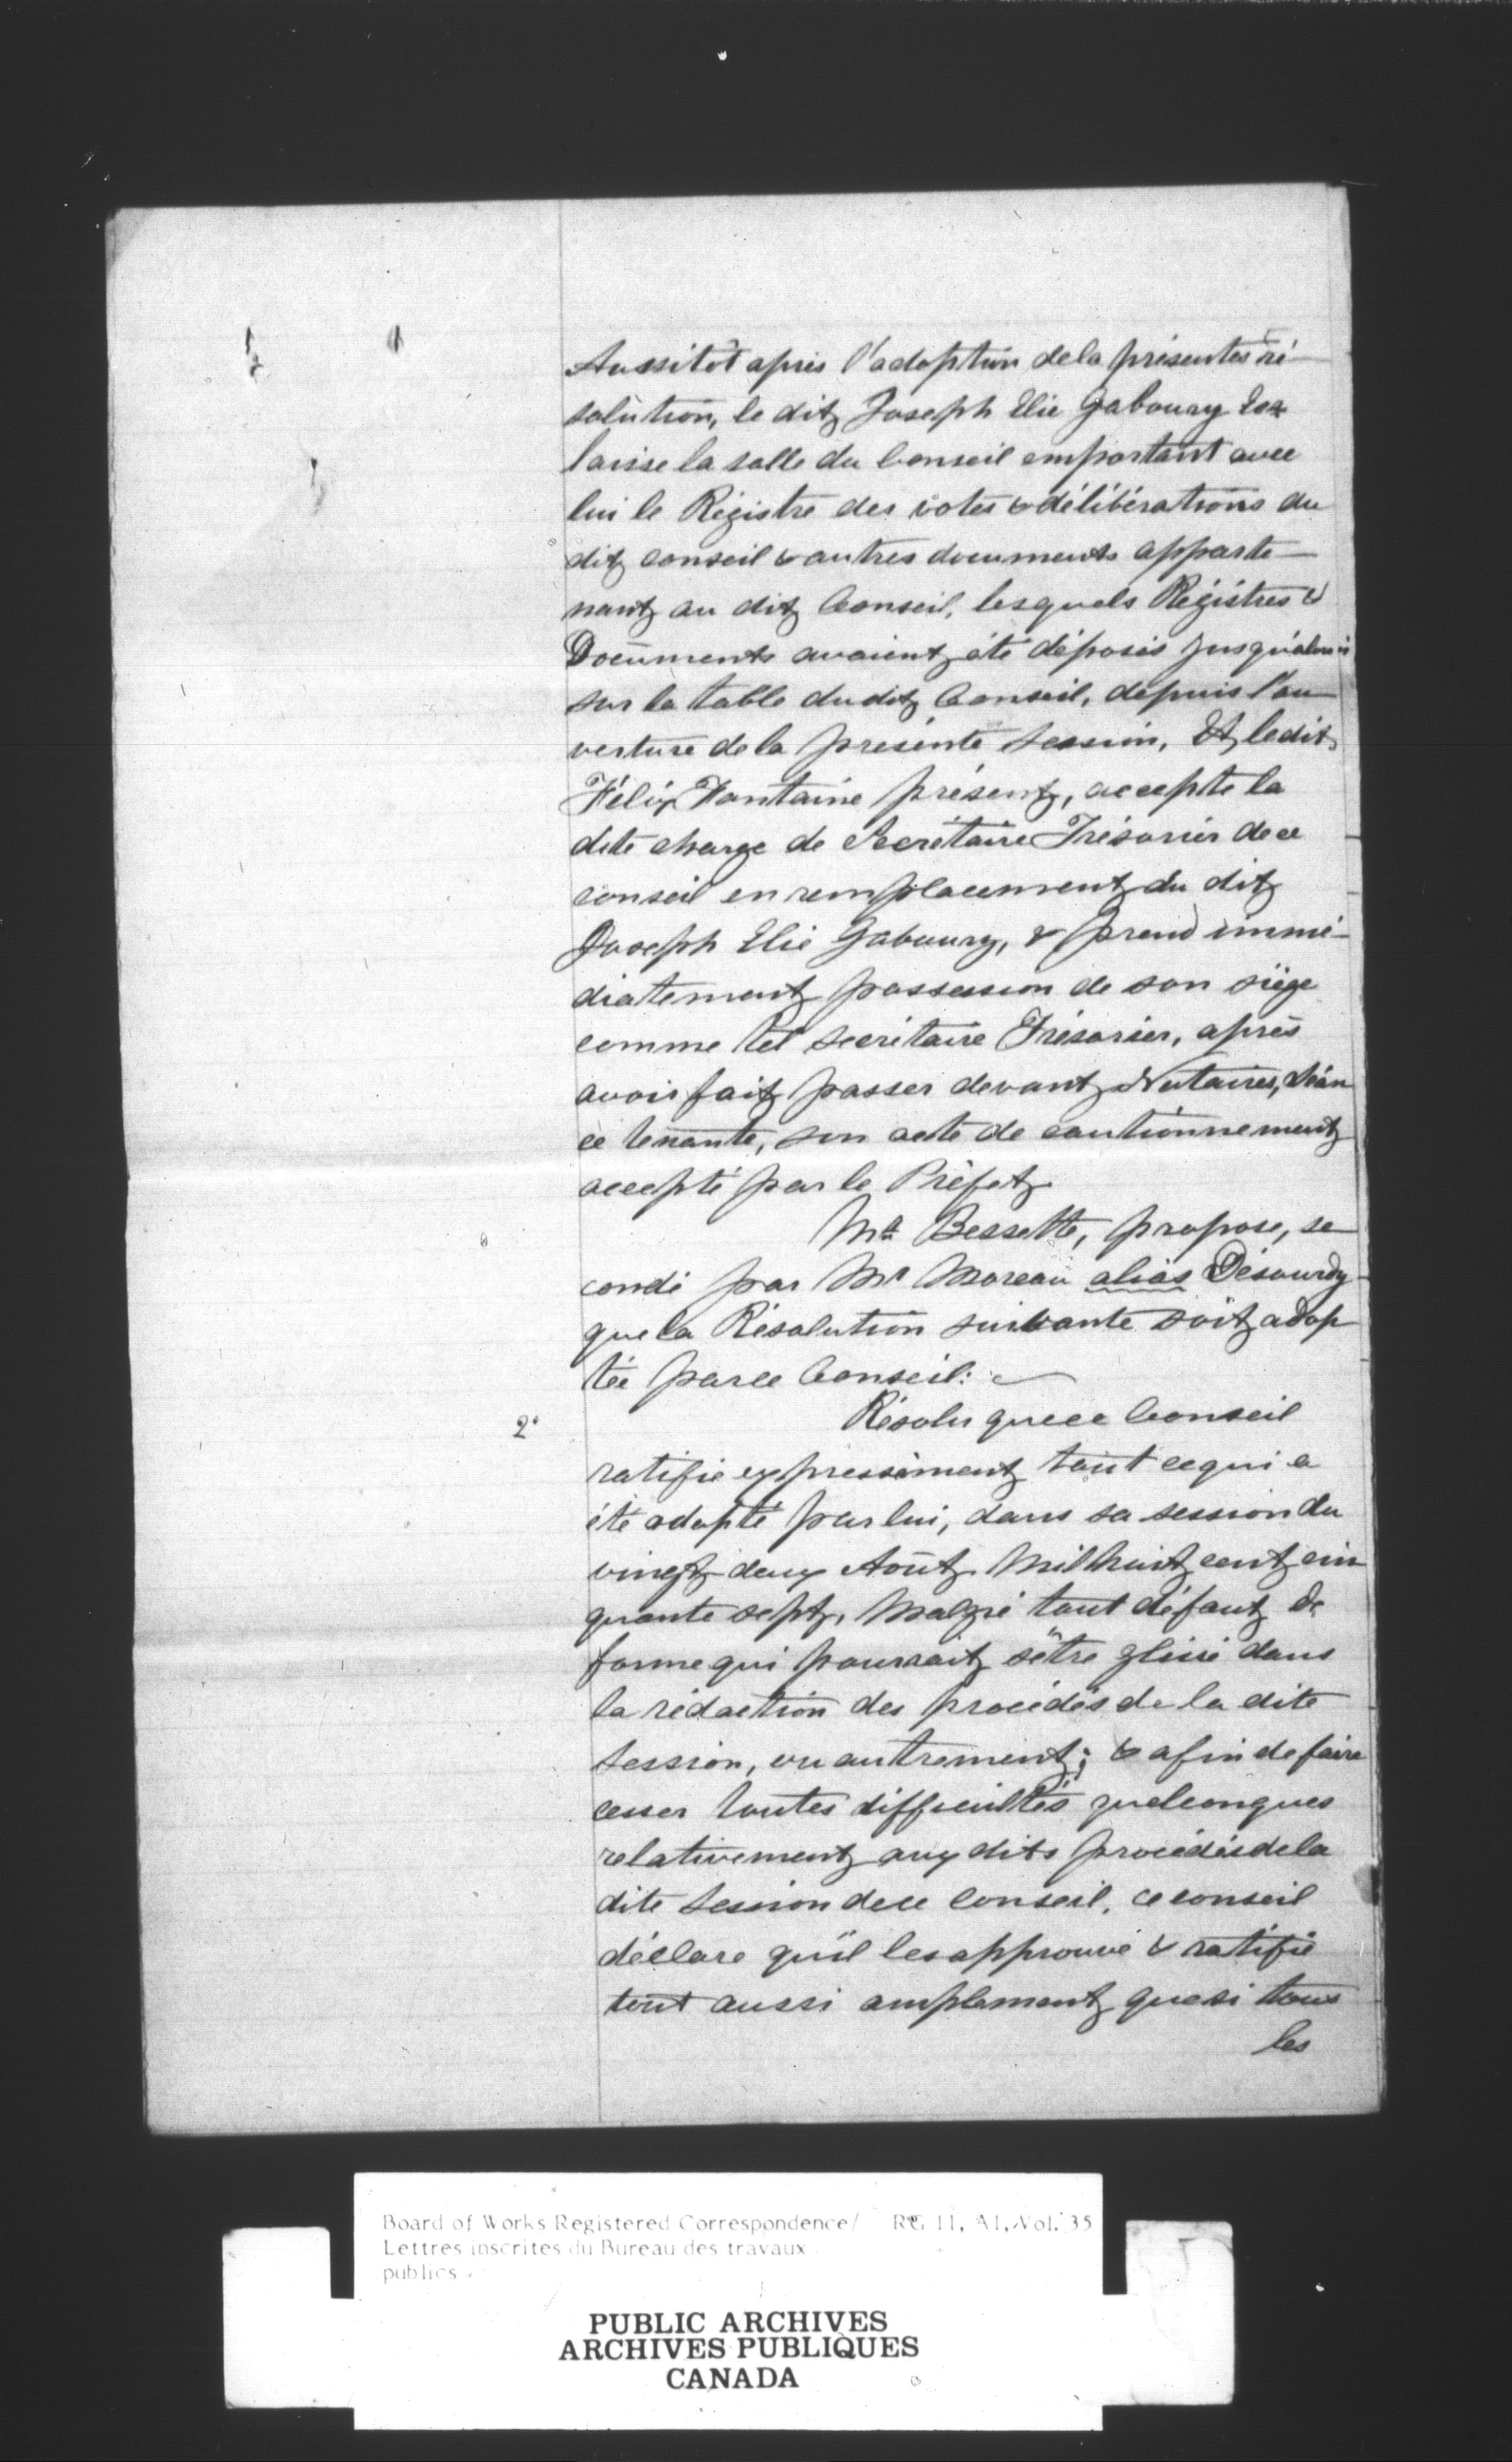 Aussitôt après l'adoption de la présentes ré-
solution, le dit Joseph Elie Gaboury Ecr
laisse la salle du Conseil emportant avec
lui le Régistre des votes & délibérations du
dit conseil & autres documents apparte-
nant au dit Conseil, lesquels Régistres &
Documents avaient été déposés jusqu'alors
sur la table du dit Conseil, depuis l'ou-
verture de la présente Session, Et le dit
Félix Fontaine présent, accepte la
dite charge de Secrétaire Trésorier de ce
conseil en remplacement du dit
Joseph Elie Gaboury, & prend immé-
diatement possession de son siège
comme tel secrétaire Trésorier, après
avoir fait passer devant Notaires, séan
ce tenante, son acte de cautionnement
accepté par le Préfet
Mr. Bessette, propose, se
condé par Mr Moreau alias Désourdy
que la Résolution suivante soit adop
tée par ce Conseil:
2°
Résolu que ce Conseil
ratifie expressément tout ce qui a
été adopté par lui, dans sa session du
vingt deux Août Mil huit cent cin
quante sept, Malgré tout défaut de
forme qui pourrait s'être glissé dans
la rédaction des procédés de la dite
Session, ou autrement; & afin de faire
cesser toutes difficultés quelconques
relativement aux dits procédés de la
dite Session de ce Conseil, ce conseil
déclare qu'il les approuve & ratifie
tout aussi amplement que si tous
les
Board of Works Registered Correspondence/ RG 11, A1, Vol. 35
Lettres inscrites du Bureau des travaux
publics
PUBLIC ARCHIVES
ARCHIVES PUBLIQUES
CANADA